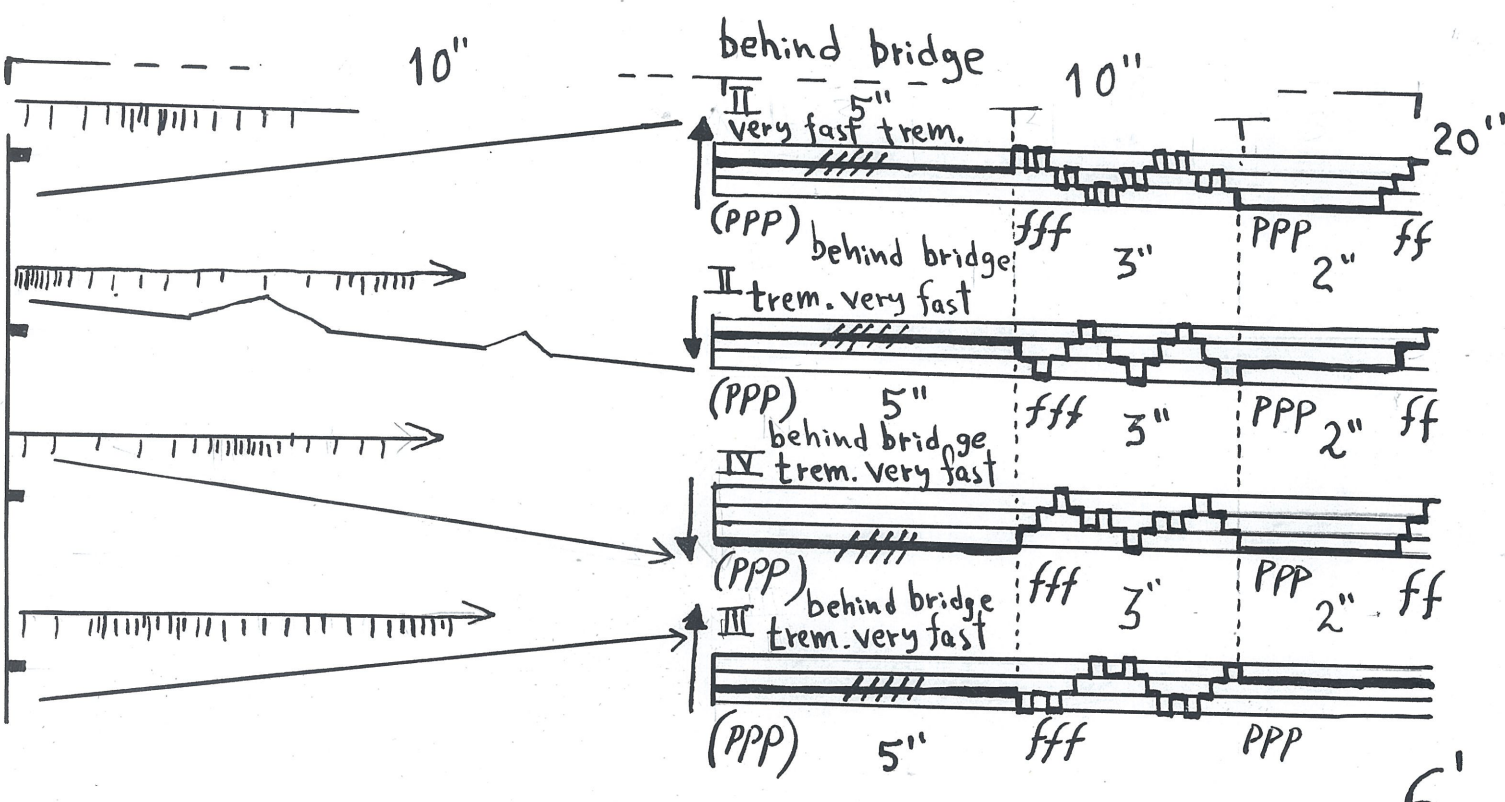 10" behind bridge 10"
II 5"
very fast trem. 20"
(PPP) fff PPP ff
behind bridge 3" 2"
II trem. very fast
(PPP) 5" fff 3" PPP 2" ff
behind bridge
IV trem. very fast
(PPP) fff 3" PPP 2" ff
behind bridge
III trem. very fast
(PPP) 5" fff PPP
6'